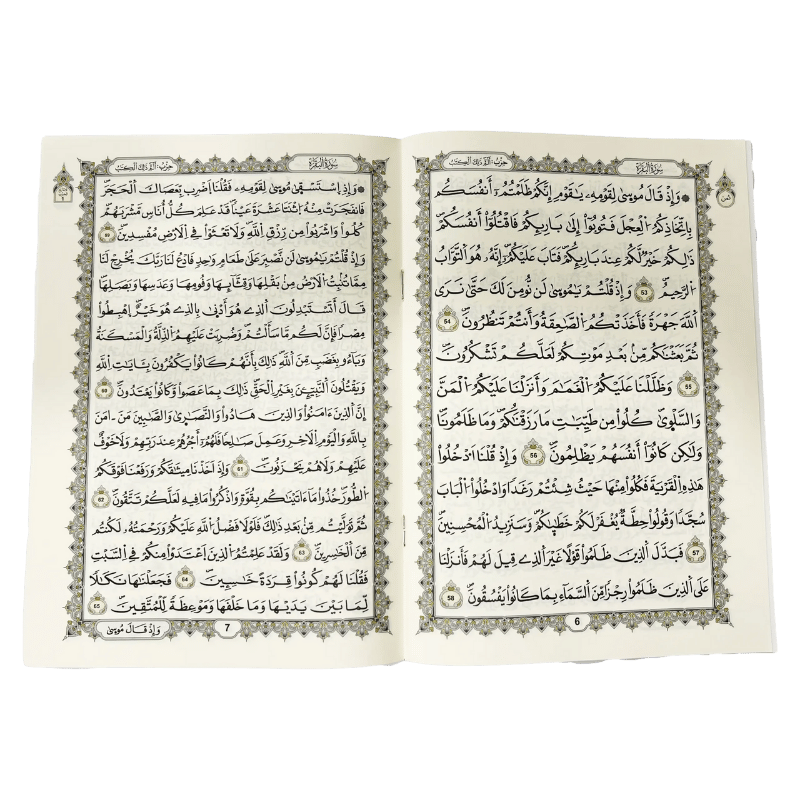 سُورَةُ البَقَرَة
حِزْب: ألَمِّ ذَلِكَ الكِتَب
ثمن
۞ وَإِذْ قَالَ مُوسَىٰ لِقَوْمِهِۦ يَٰقَوْمِ إِنَّكُمْ ظَلَمْتُمُۥٓ أَنفُسَكُم
بِاتِّخَاذِكُمُ اُلْعِجْلَ فَتُوبُوٓا۟ إِلَىٰ بَارِئِكُمْ فَاقْتُلُوٓا۟ أَنفُسَكُمْ
ذَٰلِكُمْ خَيْرٌ لَّكُمْ عِندَ بَارِئِكُمْ فَتَابَ عَلَيْكُمُۥٓ إِنَّهُۥ هُوَ اَلتَّوَّابُ
اُلرَّحِيمُ 53 وَإِذْ قُلْتُمْ يَٰمُوسَىٰ لَن نُّومِنَ لَكَ حَتَّىٰ نَرَى
اَللَّهَ جَهْرَةً فَأَخَذَتْكُمُ اُلصَّٰعِقَةُ وَأَنتُمْ تَنظُرُونَ 54
ثُمَّ بَعَثْنَٰكُم مِّنۢ بَعْدِ مَوْتِكُمْ لَعَلَّكُمْ تَشْكُرُونَ
55 وَظَلَّلْنَا عَلَيْكُمُ اُلْغَمَٰمَ وَأَنزَلْنَا عَلَيْكُمُ اُلْمَنَّ
وَالسَّلْوَىٰ كُلُوا۟ مِن طَيِّبَٰتِ مَا رَزَقْنَٰكُمْ وَمَا ظَلَمُونَا
وَلَٰكِن كَانُوٓا۟ أَنفُسَهُمْ يَظْلِمُونَ 56 وَإِذْ قُلْنَا اَدْخُلُوا۟
هَٰذِهِ اِلْقَرْيَةَ فَكُلُوا۟ مِنْهَا حَيْثُ شِئْتُمْ رَغَدًا وَادْخُلُوا۟ اُلْبَابَ
سُجَّدًا وَقُولُوا۟ حِطَّةٌ يُغْفَرْ لَكُمْ خَطَٰيَٰكُمْ وَسَنَزِيدُ اُلْمُحْسِنِينَ
57 فَبَدَّلَ اَلذِينَ ظَلَمُوا۟ قَوْلًا غَيْرَ اَلذِى قِيلَ لَهُمْ فَأَنزَلْنَا
عَلَى اَلذِينَ ظَلَمُوا۟ رِجْزًا مِّنَ اَلسَّمَآءِ بِمَا كَانُوا۟ يَفْسُقُونَ 58
6
سُورَةُ البَقَرَة
حِزْب: ألَمِّ ذَلِكَ الكِتَب
۞ وَإِذِ اِسْتَسْقَىٰ مُوسَىٰ لِقَوْمِهِۦ فَقُلْنَا اَضْرِب بِّعَصَاكَ اَلْحَجَرَ
فَانفَجَرَتْ مِنْهُ اُثْنَتَا عَشْرَةَ عَيْنًا قَدْ عَلِمَ كُلُّ أُنَاسٍ مَّشْرَبَهُمْ
كُلُوا۟ وَاشْرَبُوا۟ مِن رِّزْقِ اِللَّهِ وَلَا تَعْثَوْا۟ فِى اِلَارْضِ مُفْسِدِينَ 59
وَإِذْ قُلْتُمْ يَٰمُوسَىٰ لَن نَّصْبِرَ عَلَىٰ طَعَامٍ وَٰحِدٍ فَادْعُ لَنَا رَبَّكَ يُخْرِجْ لَنَا
مِمَّا تُنۢبِتُ اُلَارْضُ مِنۢ بَقْلِهَا وَقِثَّآئِهَا وَفُومِهَا وَعَدَسِهَا وَبَصَلِهَا
قَالَ أَتَسْتَبْدِلُونَ اَلذِى هُوَ أَدْنَىٰ بِالذِى هُوَ خَيْرٌ اِهْبِطُوا۟
مِصْرًا فَإِنَّ لَكُم مَّا سَأَلْتُمْ وَضُرِبَتْ عَلَيْهِمُ اُلذِّلَّةُ وَالْمَسْكَنَةُ
وَبَآءُو بِغَضَبٍ مِّنَ اَللَّهِ ذَٰلِكَ بِأَنَّهُمْ كَانُوا۟ يَكْفُرُونَ بِـَٔايَٰتِ اِللَّهِ
وَيَقْتُلُونَ اَلنَّبِيٓـِٕينَ بِغَيْرِ اِلْحَقِّ ذَٰلِكَ بِمَا عَصَوا۟ وَّكَانُوا۟ يَعْتَدُونَ 60
إِنَّ اَلذِينَ ءَامَنُوا۟ وَالذِينَ هَادُوا۟ وَالنَّصَٰرَىٰ وَالصَّٰبِينَ مَنَ ـ‍امَنَ
بِاللَّهِ وَالْيَوْمِ اِلَاخِرِ وَعَمِلَ صَٰلِحًا فَلَهُمُۥٓ أَجْرُهُمْ عِندَ رَبِّهِمْ وَلَا خَوْفٌ
عَلَيْهِمْ وَلَا هُمْ يَحْزَنُونَ 61 وَإِذَ اَخَذْنَا مِيثَٰقَكُمْ وَرَفَعْنَا فَوْقَكُمُ
اُلطُّورَ خُذُوا۟ مَآ ءَاتَيْنَٰكُم بِقُوَّةٍ وَاذْكُرُوا۟ مَا فِيهِ لَعَلَّكُمْ تَتَّقُونَ 62
ثُمَّ تَوَلَّيْتُم مِّنۢ بَعْدِ ذَٰلِكَ فَلَوْلَا فَضْلُ اُللَّهِ عَلَيْكُمْ وَرَحْمَتُهُۥ لَكُنتُم
مِّنَ اَلْخَٰسِرِينَ 63 وَلَقَدْ عَلِمْتُمُ اُلذِينَ اَعْتَدَوْا۟ مِنكُمْ فِى اِلسَّبْتِ
فَقُلْنَا لَهُمْ كُونُوا۟ قِرَدَةً خَٰسِـِٕينَ 64 فَجَعَلْنَٰهَا نَكَٰلًا
لِّمَا بَيْنَ يَدَيْهَا وَمَا خَلْفَهَا وَمَوْعِظَةً لِّلْمُتَّقِينَ 65
7
وَإِذْ قَالَ مُوسَىٰ